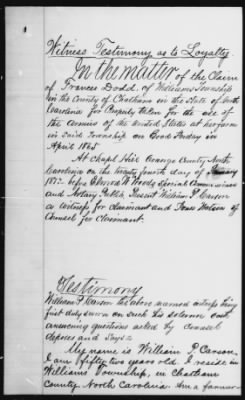 Witness Testimony as to Loyalty.
In the matter of the Claim
of Frances Dodd of Williams Township
in the County of Chatham in the State of North
Carolina for Property taken for the use of
the Armies of the United States at her farm
in said Township on Good Friday in
April 1865
At Chapel Hill Orange County North
Carolina on the twenty fourth day of January
before Edward W Woods Special Commissioner
and Notary Public, Present William P. Carson
a witness for claimant and Jones Watson of
Counsel for Claimant.
Testimony
William P. Carson the above named witness being
first duly sworn on such his solemn oath
answering questions asked by counsel
deposes and says:
My name is William P. Carson,
I am fifty two years old. I reside in
Williams Township, in Chatham
County North Carolina. Am a farmer